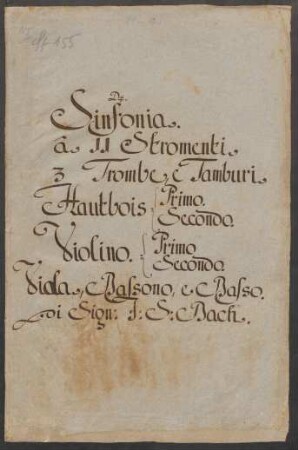 D♮.
Sinfonia.
â 11 Stromenti.
3 Trombe, e Tamburi.
Hautbois { Primo.
Secondo.
Violino. { Primo
Secondo.
Viola, Bassono, e Basso.
di Sign: J: S: Bach.